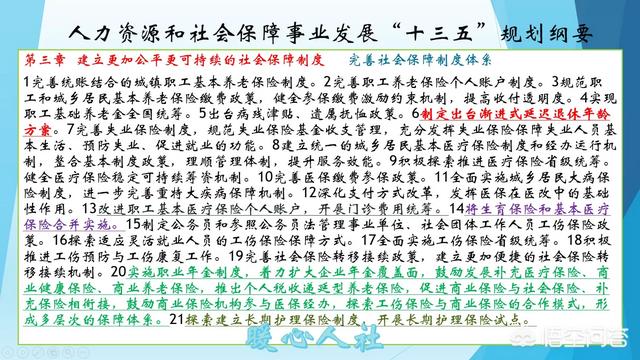 人力资源和社会保障事业发展“十三五”规划纲要
第三章 建立更加公平更可持续的社会保障制度 完善社会保障制度体系
1完善统账结合的城镇职工基本养老保险制度。2完善职工养老保险个人账户制度。3规范职
工和城乡居民基本养老保险缴费政策，健全参保缴费激励约束机制，提高收付透明度。4实现
职工基础养老金全国统筹。5出台病残津贴、遗属抚恤政策。6制定出台渐进式延迟退休年龄
方案。7完善失业保险制度，规范失业保险基金收支管理，充分发挥失业保险保障失业人员基
本生活、预防失业、促进就业的功能。8建立统一的城乡居民基本医疗保险制度和经办运行机
制，整合基本制度政策，理顺管理体制，提升服务效能。9积极探索推进医疗保险省级统筹。
健全医疗保险稳定可持续筹资机制。10完善医保缴费参保政策。11全面实施城乡居民大病保
险制度，进一步完善重特大疾病保障机制。12深化支付方式改革，发挥医保在医改中的基础
性作用。13改进职工基本医疗保险个人账户，开展门诊费用统筹。14将生育保险和基本医疗
保险合并实施。15制定公务员和参照公务员法管理事业单位、社会团体工作人员工伤保险政
策。16探索适应灵活就业人员的工伤保险保障方式。17全面实施工伤保险省级统筹。18积极
推进工伤预防与工伤康复工作。19完善社会保险转移接续政策，建立更加便捷的社会保险转
移接续机制。20实施职业年金制度，着力扩大企业年金覆盖面，鼓励发展补充医疗保险、商
业健康保险、商业养老保险，推出个人税收递延型养老保险，促进商业保险与社会保险、补
充保险相衔接，鼓励商业保险机构参与医保经办，探索工伤保险与商业保险的合作模式，形
成多层次的保障体系。21探索建立长期护理保险制度，开展长期护理保险试点。
暖心人社
悟空问答